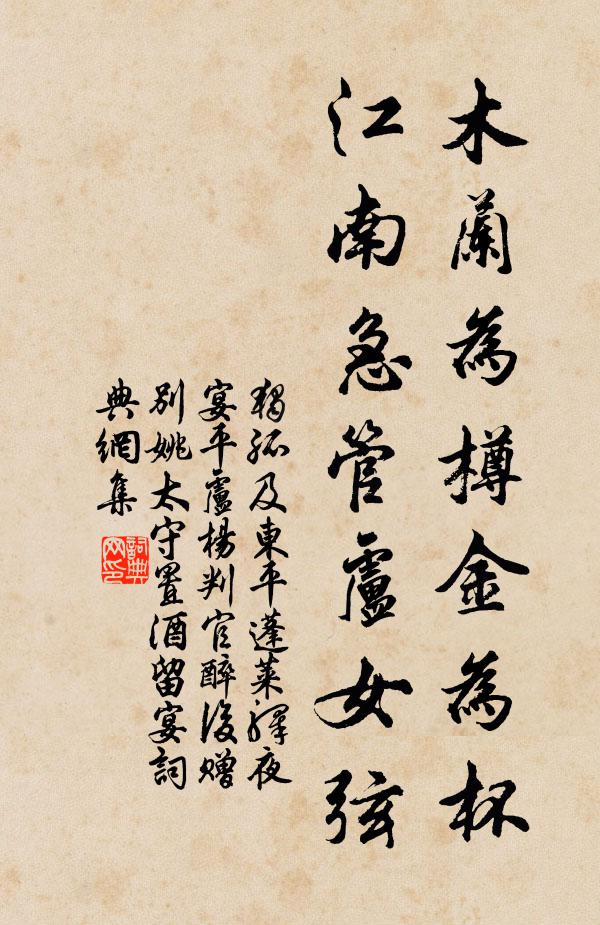 木蘭為樽金為杯
江南急管盧女弦
獨孤及東平蓬萊驛夜
宴平盧楊判官醉後贈
別姚太守置酒留宴詞
典網集
詞典
网印